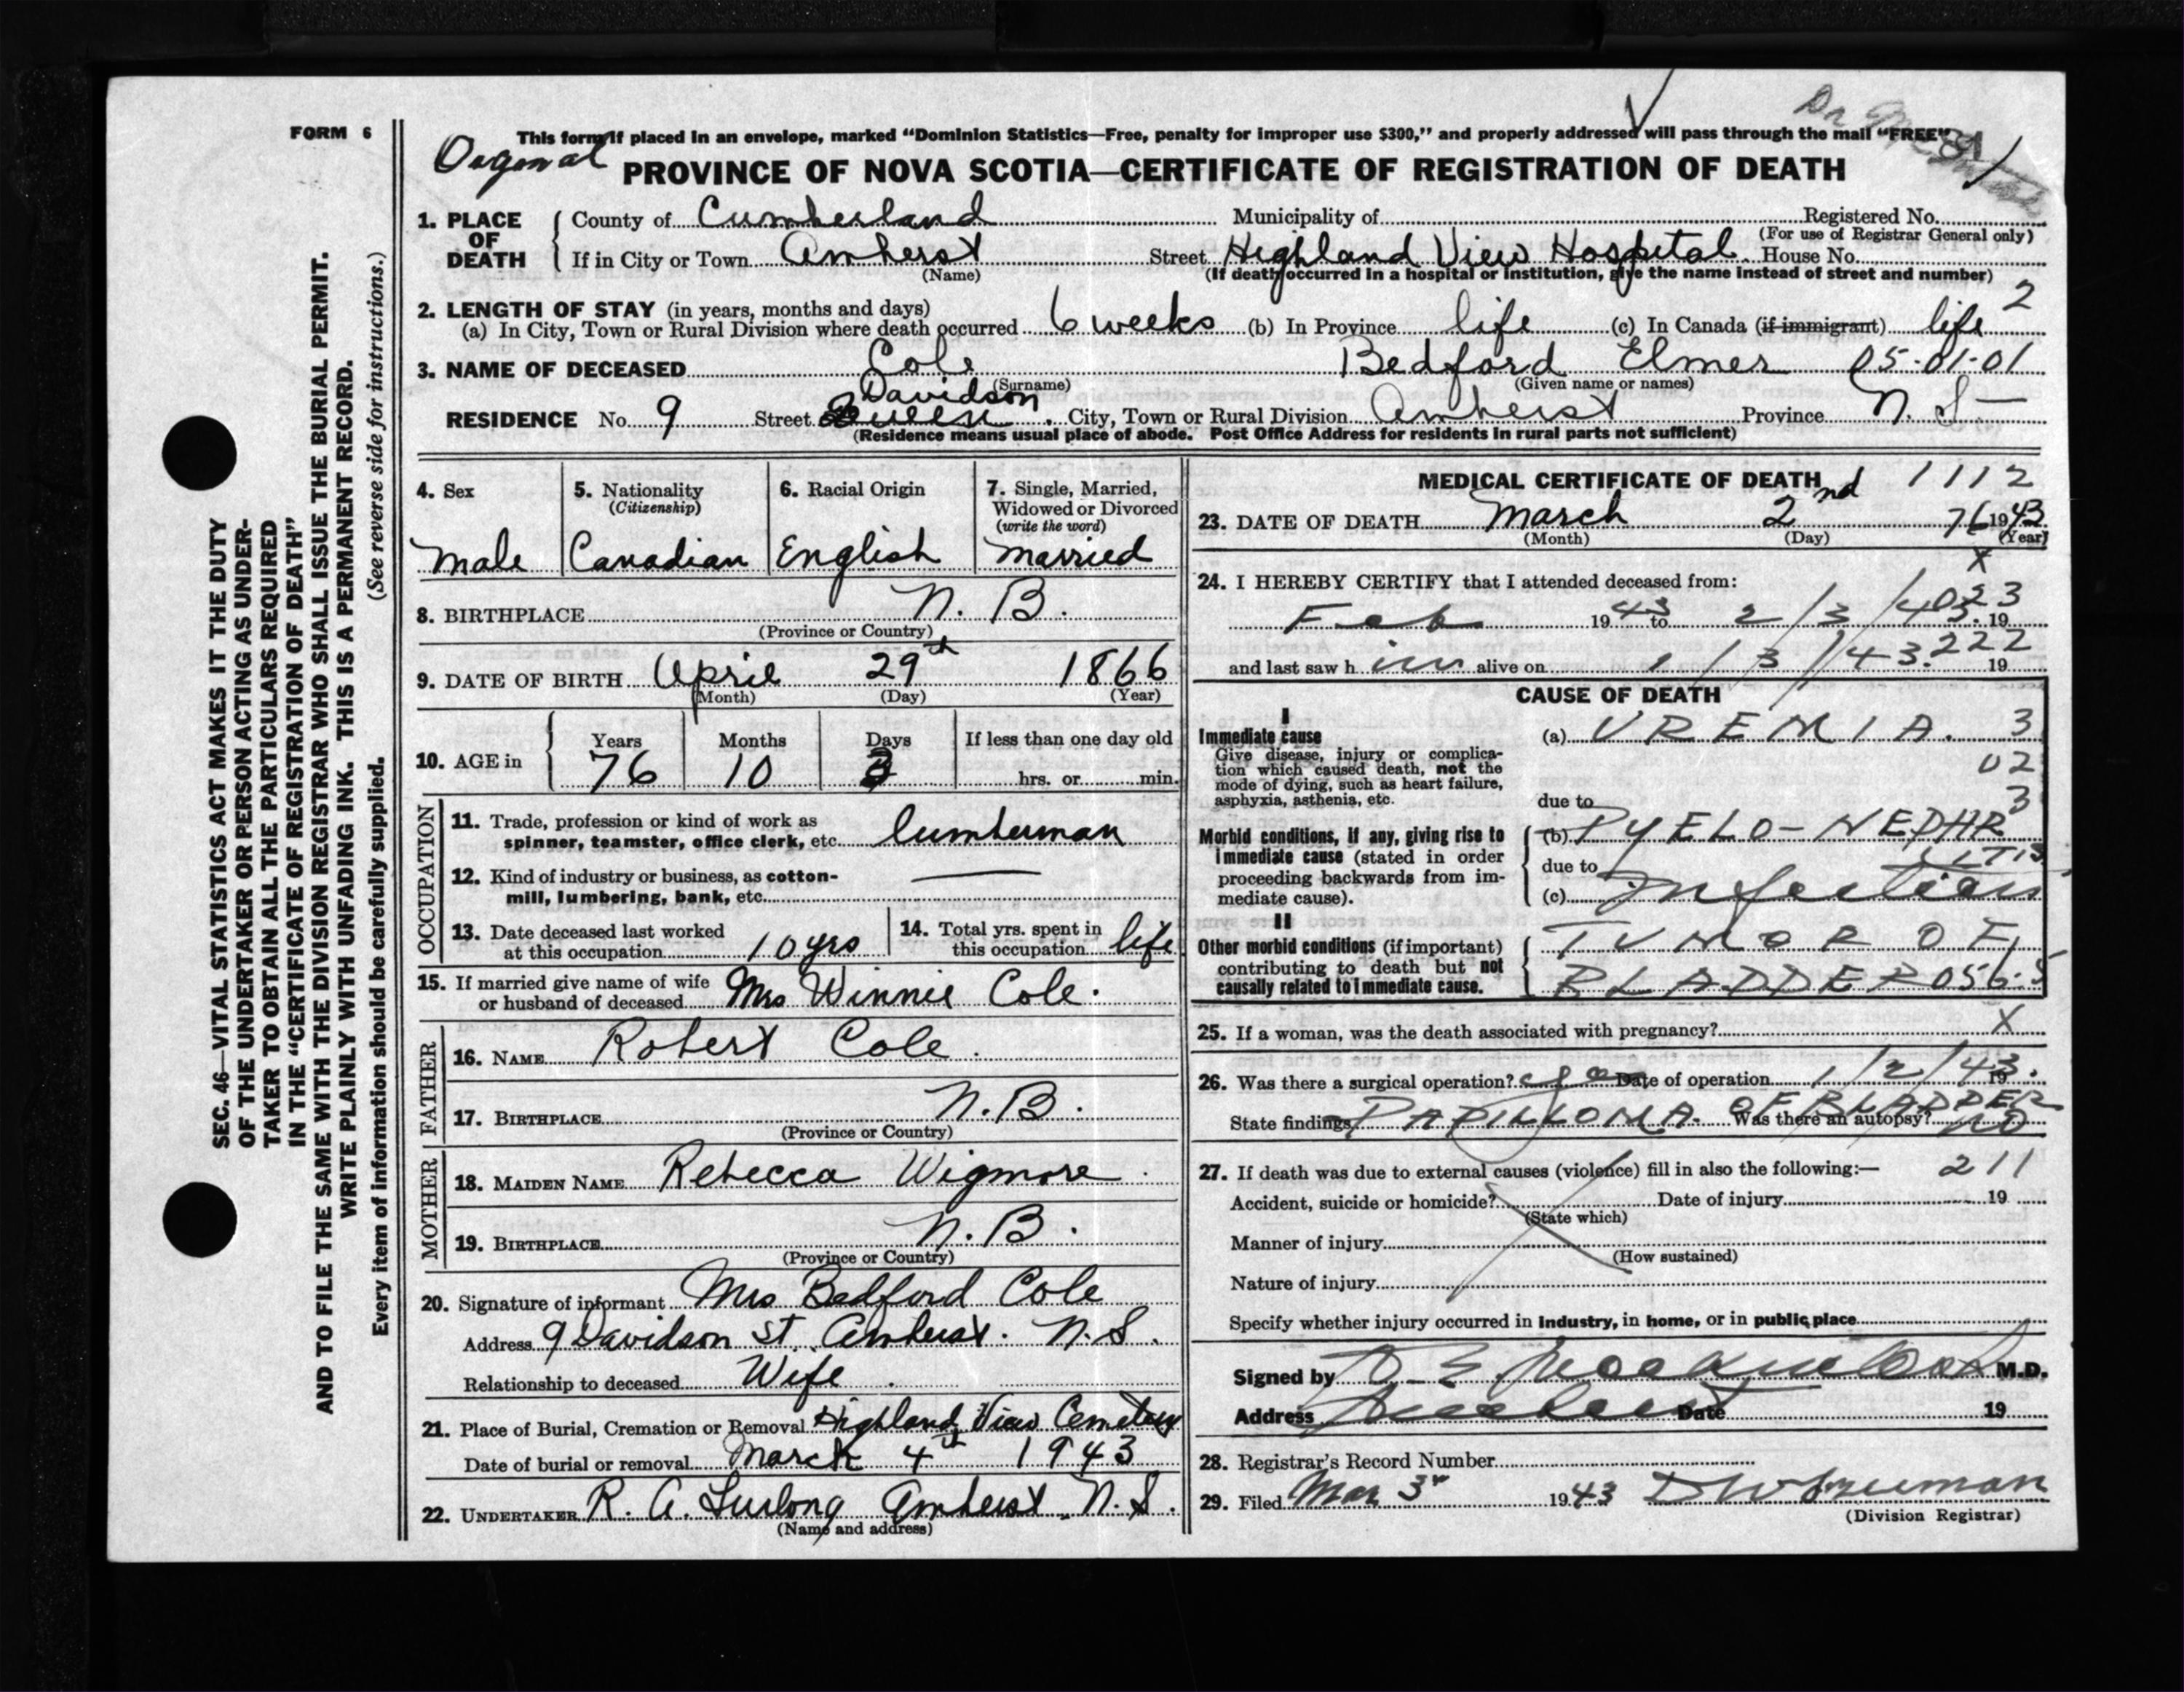 FORM 6
This form if placed in an envelope, marked “Dominion Statistics—Free, penalty for improper use $300,” and properly addressed will pass through the mail “FREE”
Orgonal PROVINCE OF NOVA SCOTIA—CERTIFICATE OF REGISTRATION OF DEATH
1. PLACE OF DEATH County of Cumberland Municipality of Registered No.
(For use of Registrar General only)
If in City or Town Amherst Street Highland View Hospital House No.
(Name) (If death occurred in a hospital or institution, give the name instead of street and number)
2. LENGTH OF STAY (in years, months and days) 2
(a) In City, Town or Rural Division where death occurred 6 weeks (b) In Province life (c) In Canada (if immigrant) life
3. NAME OF DECEASED Cole Bedford Elmer 05-01-01
(Surname) (Given name or names)
Davidson
RESIDENCE No. 9 Street Queen City, Town or Rural Division Amherst Province N. S—
(Residence means usual place of abode. Post Office Address for residents in rural parts not sufficient)
4. Sex 5. Nationality (Citizenship) 6. Racial Origin 7. Single, Married, Widowed or Divorced (write the word)
Male Canadian English Married
8. BIRTHPLACE N. B.
(Province or Country)
9. DATE OF BIRTH April 29th 1866
(Month) (Day) (Year)
10. AGE in Years Months Days If less than one day old
76 10 3 hrs. or min.
OCCUPATION
11. Trade, profession or kind of work as
spinner, teamster, office clerk, etc. lumberman
12. Kind of industry or business, as cotton-
mill, lumbering, bank, etc. —
13. Date deceased last worked
at this occupation 10 yrs
14. Total yrs. spent in
this occupation life
15. If married give name of wife
or husband of deceased Mrs Winnie Cole.
FATHER
16. NAME Robert Cole
17. BIRTHPLACE N.B.
(Province or Country)
MOTHER
18. MAIDEN NAME Rebecca Wigmore
19. BIRTHPLACE N.B.
(Province or Country)
20. Signature of informant Mrs Bedford Cole
Address 9 Davidson St. Amherst. N.S.
Relationship to deceased Wife
21. Place of Burial, Cremation or Removal Highland View Cemetery
Date of burial or removal March 4th 1943
22. UNDERTAKER R. A. Furlong Amherst N.S.
(Name and address)
MEDICAL CERTIFICATE OF DEATH 1112
23. DATE OF DEATH March 2nd 76 1943
(Month) (Day) (Year)
X
24. I HEREBY CERTIFY that I attended deceased from:
023
Feb 1943 to 2/3/43. 19
and last saw h im alive on 1/3/43. 222 19
CAUSE OF DEATH
I
Immediate cause
Give disease, injury or complica-
tion which caused death, not the
mode of dying, such as heart failure,
asphyxia, asthenia, etc.
(a) UREMIA. 3
02
3
due to
Morbid conditions, if any, giving rise to
immediate cause (stated in order
proceeding backwards from im-
mediate cause).
(b) PYELO-NEPHR
ITIS
due to
(c) Infections
II
Other morbid conditions (if important)
contributing to death but not
causally related to immediate cause.
TUMOR OF
BLADDER 056.5
25. If a woman, was the death associated with pregnancy? X
26. Was there a surgical operation? yes Date of operation 1/2/43. 19
State findings PAPILLOMA. OF BLADDER Was there an autopsy? NO
27. If death was due to external causes (violence) fill in also the following:— 211
Accident, suicide or homicide? Date of injury 19
(State which)
Manner of injury
(How sustained)
Nature of injury
Specify whether injury occurred in industry, in home, or in public place
Signed by M.D.
Address Amherst Date 19
28. Registrar’s Record Number
29. Filed Mar 3rd 1943
(Division Registrar)
SEC. 46—VITAL STATISTICS ACT MAKES IT THE DUTY
OF THE UNDERTAKER OR PERSON ACTING AS UNDER-
TAKER TO OBTAIN ALL THE PARTICULARS REQUIRED
IN THE “CERTIFICATE OF REGISTRATION OF DEATH”
AND TO FILE THE SAME WITH THE DIVISION REGISTRAR WHO SHALL ISSUE THE BURIAL PERMIT.
WRITE PLAINLY WITH UNFADING INK. THIS IS A PERMANENT RECORD.
Every item of information should be carefully supplied. (See reverse side for instructions.)